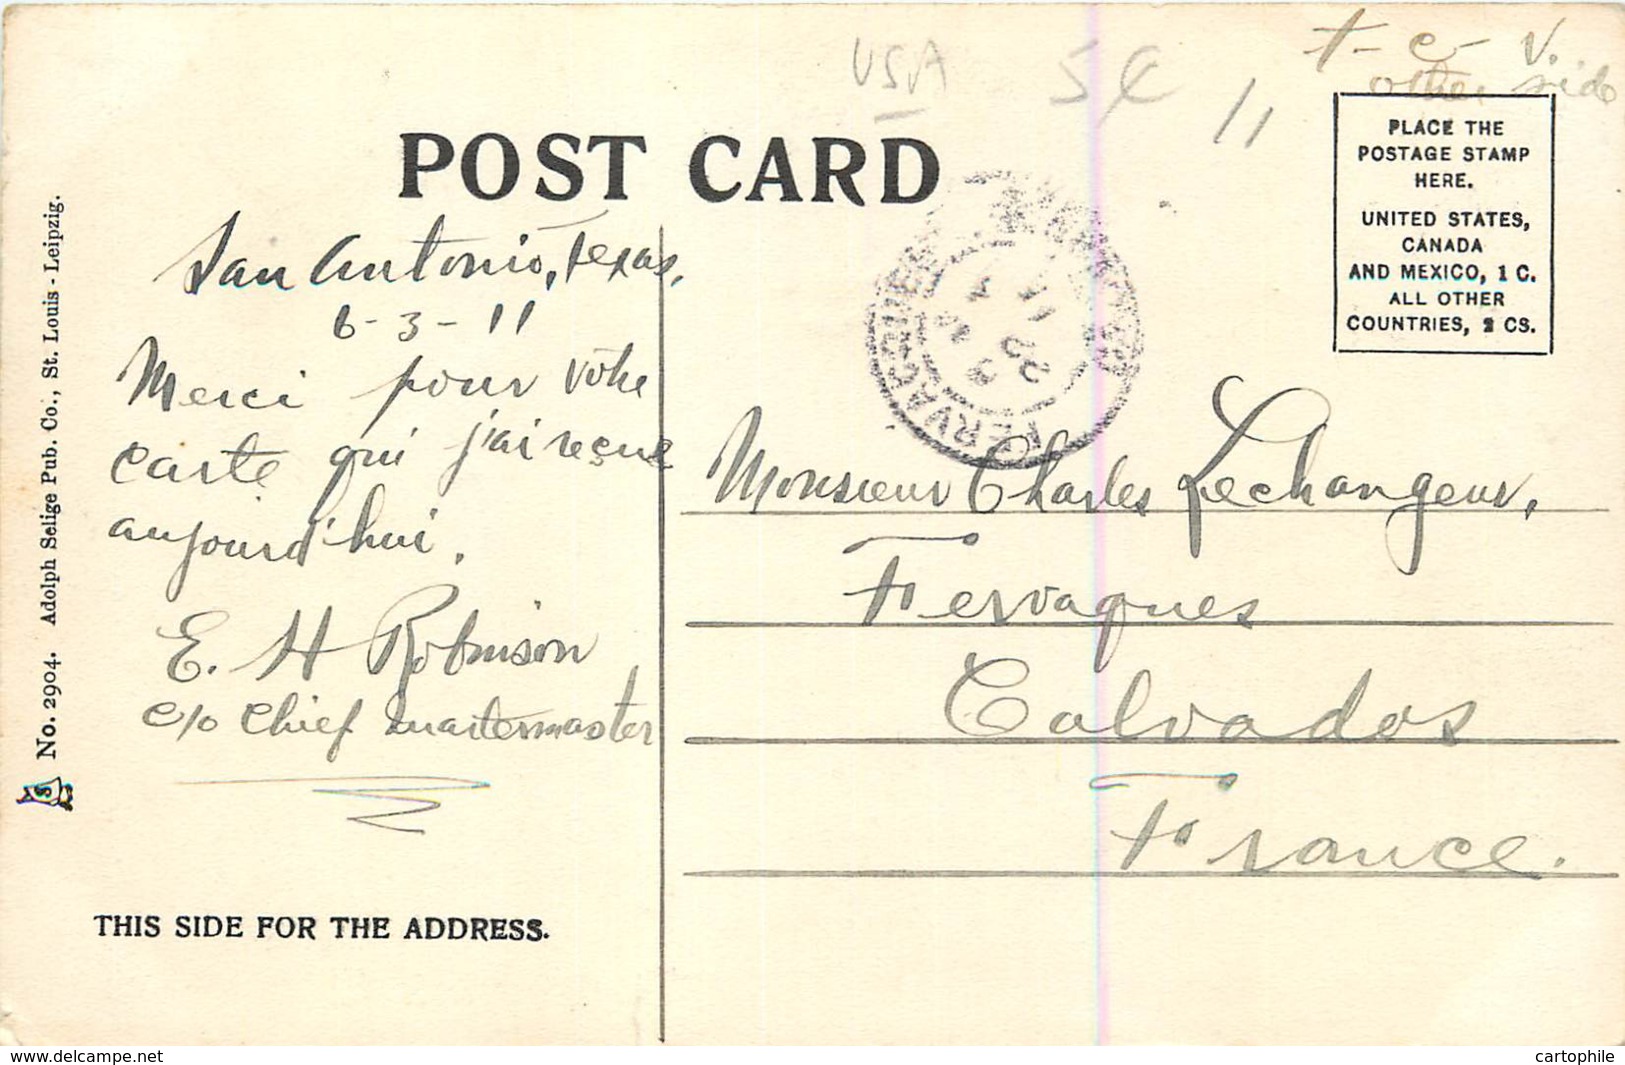 USA 5 € 11
T- C- V.
other side
POST CARD
PLACE THE
POSTAGE STAMP
HERE.
UNITED STATES,
CANADA
AND MEXICO, 1 C.
ALL OTHER
COUNTRIES, 2 CS.
San Antonio, Texas,
6-3-11
Merci pour votre
carte qui j'ai reçue
aujourd'hui.
E. H Robinson
c/o Chief Quartermaster
FERVACQUES
Monsieur Charles Lechangeur,
Fervaques
Calvados
France.
THIS SIDE FOR THE ADDRESS.
No. 2904. Adolph Selige Pub. Co., St. Louis - Leipzig.
www.delcampe.net
cartophile